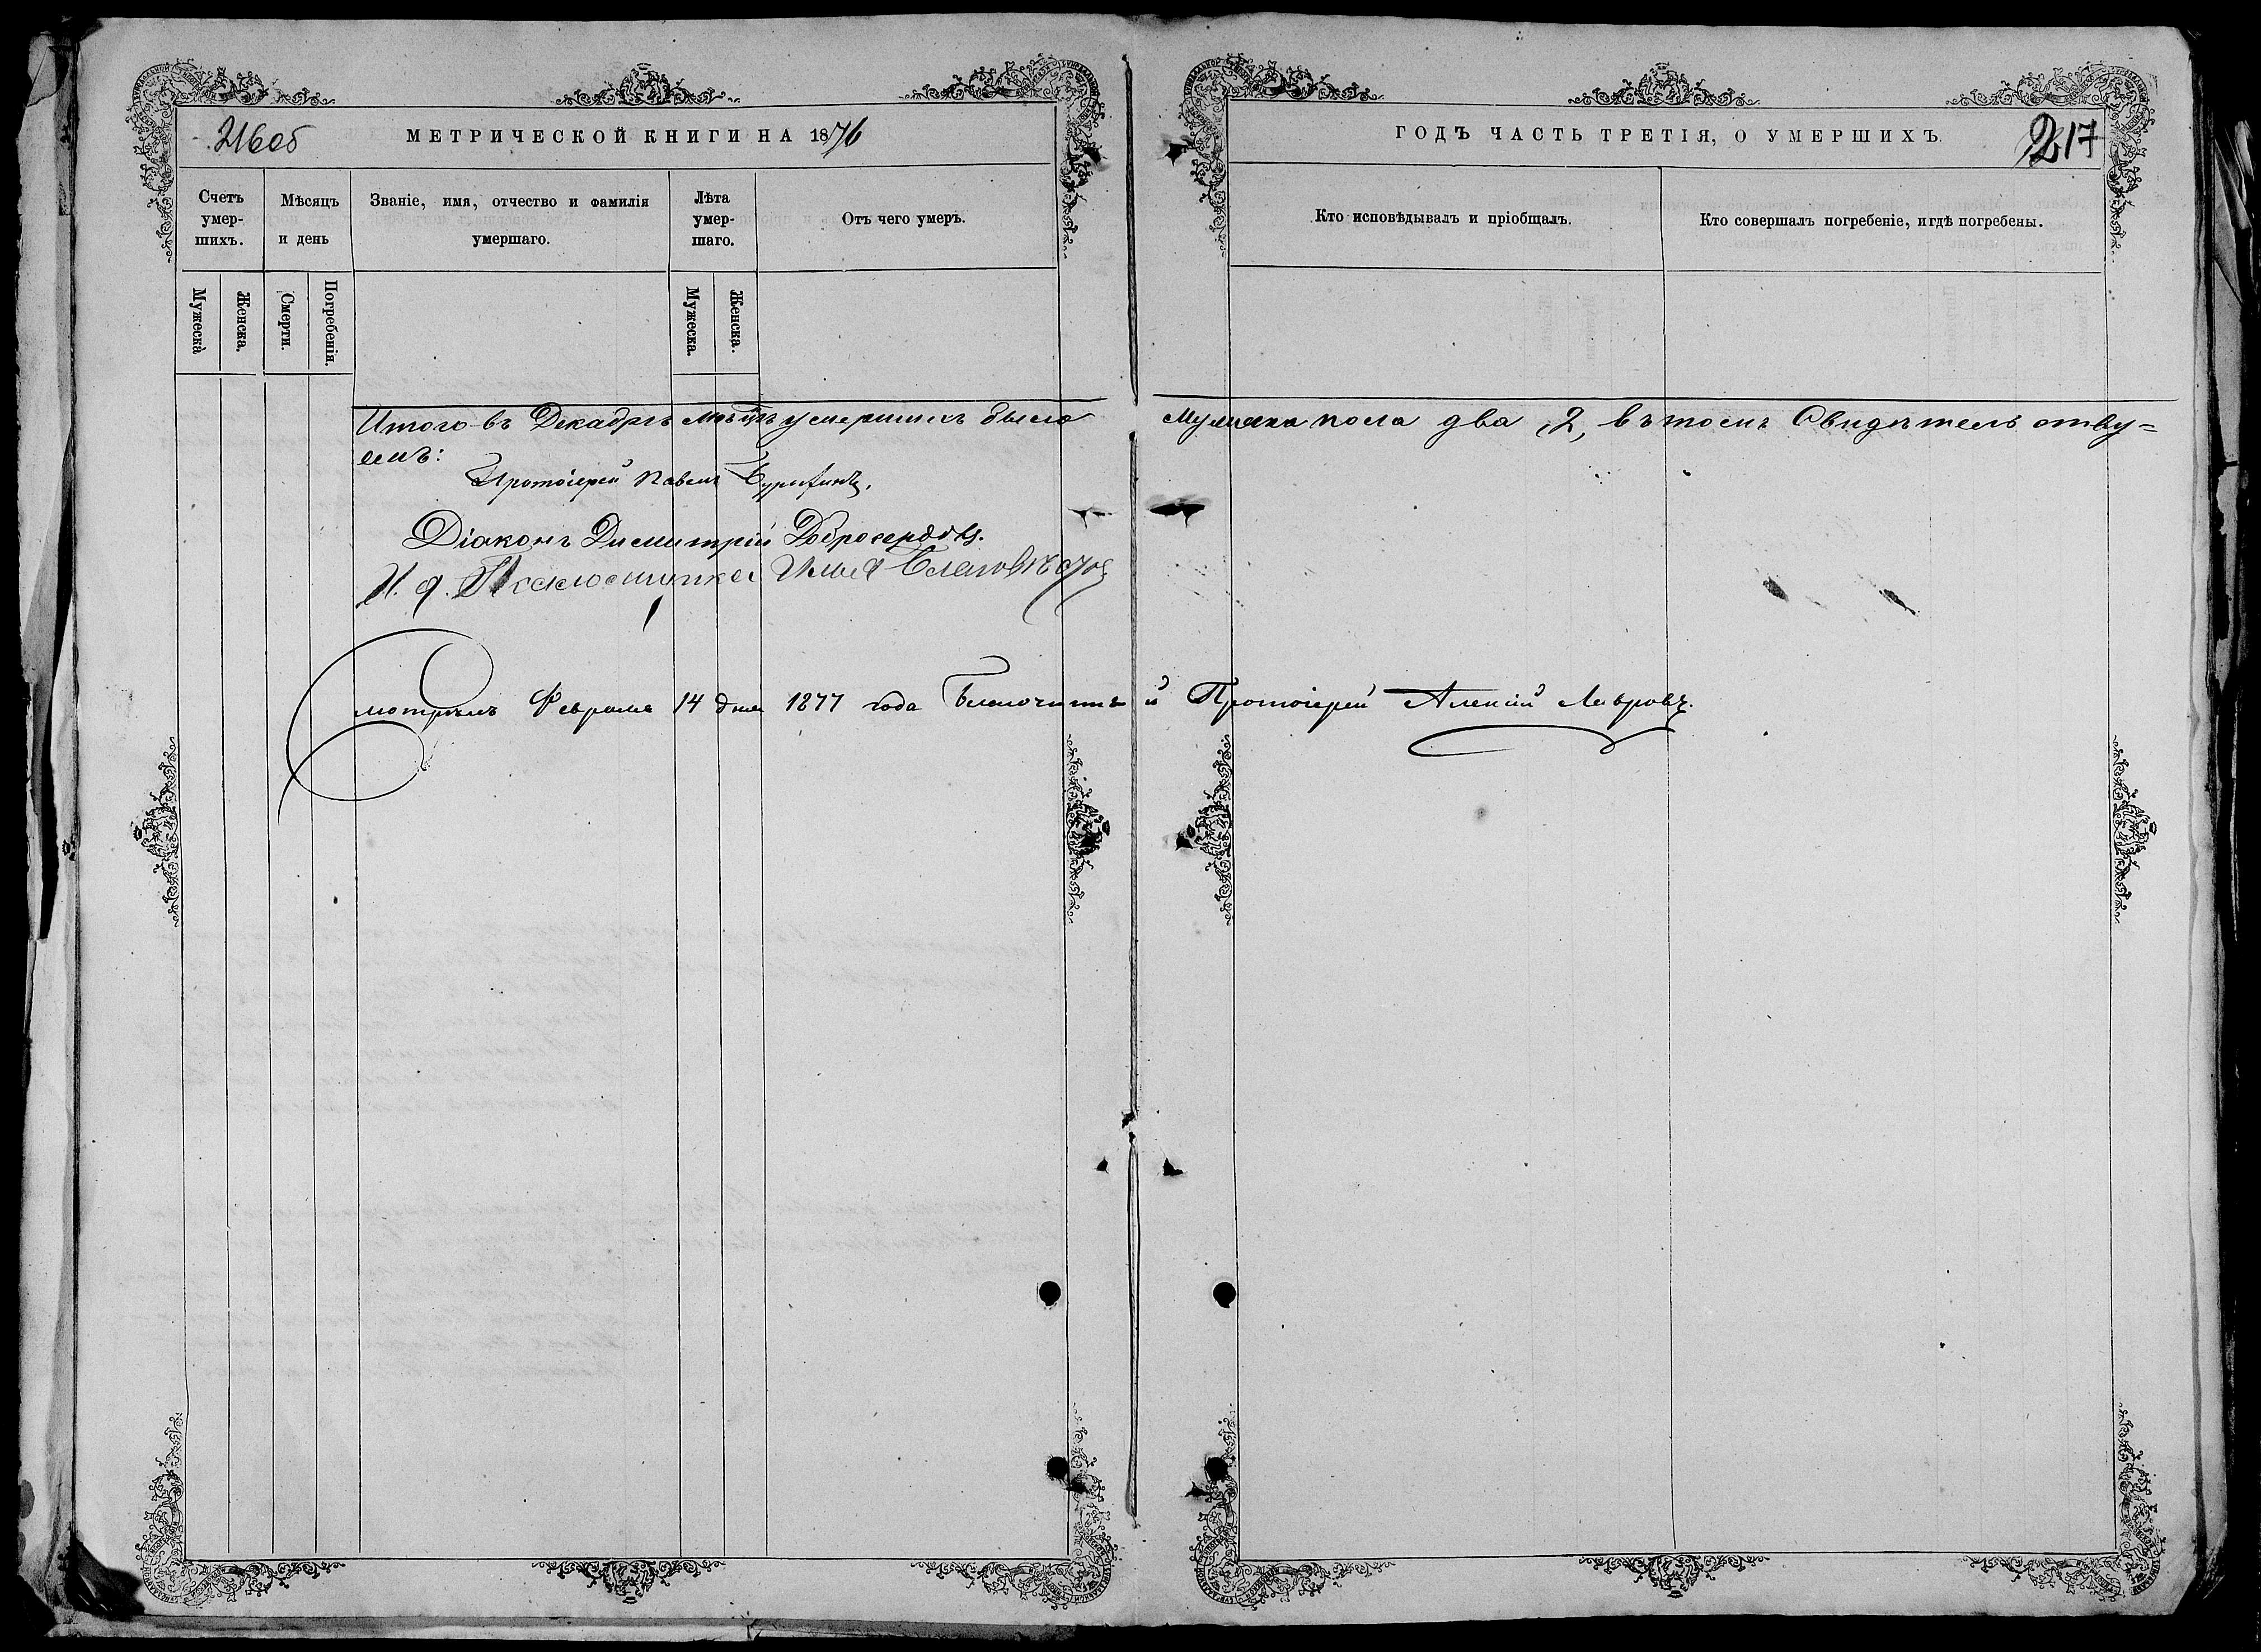 216об
МЕТРИЧЕСКОЙ КНИГИ НА 1876
ГОДЪ ЧАСТЬ ТРЕТІЯ, О УМЕРШИХЪ.
217
Счетъ умер-
шихъ.
Мѣсяцъ
и день
Званіе, имя, отчество и фамилія
умершаго.
Лѣта
умер-
шаго.
Отъ чего умеръ.
Кто исповѣдывалъ и пріобщалъ.
Кто совершалъ погребеніе, и гдѣ погребены.
Мужеска
Женска.
Смерти.
Погребенія.
Мужеска.
Женска.
Итого въ Декабрѣ мѣсяцѣ умершихъ было Мужеска пола два, 2, въ томъ Свидѣтельству=
емъ:
Протоіерей Павелъ
Діаконъ Димитрій Добросердовъ.
И. д. Псаломщика Илья Благовѣ
Смотрѣлъ Февраля 14 дня 1877 года Благочинный Протоіерей Алексій Лавровъ.